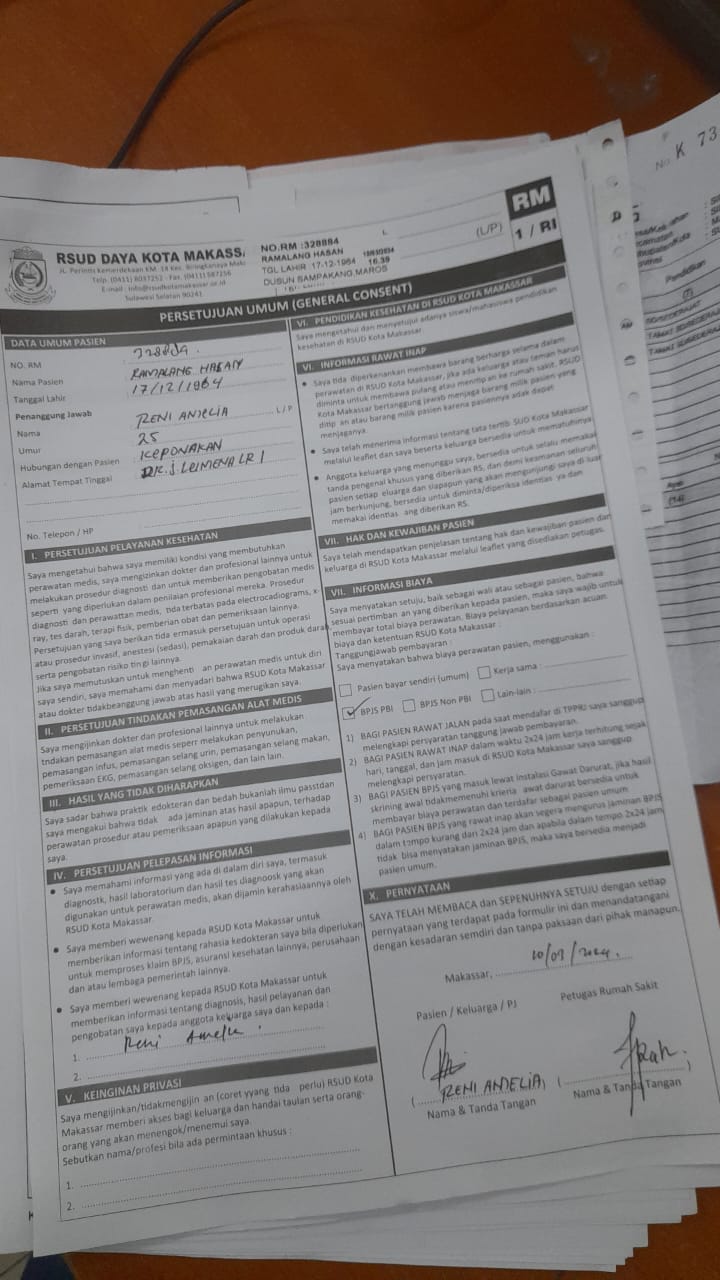 RM
1 / RI
(L/P)
RSUD DAYA KOTA MAKASS
JL. Perintis Kemerdekaan KM. 14 Kec. Biringkanaya Mak
Telp. (0411) 8037252 - Fax. (0411) 587256
E-mail : info@rsudkotamakassar.or.id
Sulawesi Selatan 90241
NO.RM :328884
RAMALANG HASAN
TGL LAHIR 17-12-1964 16.39
DUSUN SAMPAKANG,MAROS
PERSETUJUAN UMUM (GENERAL CONSENT)
DATA UMUM PASIEN
NO. RM
Nama Pasien RAMALANG HASAN
Tanggal Lahir 17/12/1964
Penanggung Jawab
Nama RENI AMELIA L/P
Umur 25
Hubungan dengan Pasien KEPONAKAN
Alamat Tempat Tinggal DR. J. LEIMENA LR 1
No. Telepon / HP
I. PERSETUJUAN PELAYANAN KESEHATAN
Saya mengetahui bahwa saya memiliki kondisi yang membutuhkan
perawatan medis, saya mengizinkan dokter dan profesional lainnya untuk
melakukan prosedur diagnosti dan untuk memberikan pengobatan medis
seperti yang diperlukan dalam penilaian profesional mereka. Prosedur
diagnosti dan perawattan medis, tida terbatas pada electrocadiograms, x-
ray, tes darah, terapi fisik, pemberian obat dan pemeriksaan lainnya.
Persetujuan yang saya berikan tida ermasuk persetujuan untuk operasi
atau prosedur invasif, anestesi (sedasi), pemakaian darah dan produk darah
serta pengobatan risiko tin gi lainnya.
Jika saya memutuskan untuk menghenti an perawatan medis untuk diri
saya sendiri, saya memahami dan menyadari bahwa RSUD Kota Makassar
atau dokter tidakbeanggung jawab atas hasil yang merugikan saya.
II. PERSETUJUAN TINDAKAN PEMASANGAN ALAT MEDIS
Saya mengijinkan dokter dan profesional lainnya untuk melakukan
tndakan pemasangan alat medis seperr melakukan penyunukan,
pemasangan infus, pemasangan selang urin, pemasangan selang makan,
pemeriksaan EKG, pemasangan selang oksigen, dan lain lain.
III. HASIL YANG TIDAK DIHARAPKAN
Saya sadar bahwa praktik edokteran dan bedah bukanlah ilmu passtdan
saya mengakui bahwa tidak ada jaminan atas hasil apapun, terhadap
perawatan prosedur atau pemeriksaan apapun yang dilakukan kepada
saya.
IV. PERSETUJUAN PELEPASAN INFORMASI
• Saya memahami informasi yang ada di dalam diri saya, termasuk
diagnostk, hasil laboratorium dan hasil tes diagnoosk yang akan
digunakan untuk perawatan medis, akan dijamin kerahasiaannya oleh
RSUD Kota Makassar.
• Saya memberi wewenang kepada RSUD Kota Makassar untuk
memberikan informasi tentang rahasia kedokteran saya bila diperlukan
untuk memproses klaim BPJS, asuransi kesehatan lainnya, perusahaan
dan atau lembaga pemerintah lainnya.
• Saya memberi wewenang kepada RSUD Kota Makassar untuk
memberikan informasi tentang diagnosis, hasil pelayanan dan
pengobatan saya kepada anggota keluarga saya dan kepada :
1. Reni Amelia
2.
V. KEINGINAN PRIVASI
Saya mengijinkan/tidakmengijin an (coret yyang tida perlu) RSUD Kota
Makassar memberi akses bagi keluarga dan handai taulan serta orang-
orang yang akan menengok/menemui saya.
Sebutkan nama/profesi bila ada permintaan khusus :
1.
2.
VI. PENDIDIKAN KESEHATAN DI RSUD KOTA MAKASSAR
Saya mengetahui dan menyetujui adanya siswa/mahasiswa pendidikan
kesehatan di RSUD Kota Makassar
VI. INFORMASI RAWAT INAP
• Saya tida diperkenankan membawa barang berharga selama dalam
perawatan di RSUD Kota Makassar, jika ada keluarga atau teman harus
diminta untuk membawa pulang atau menitip an ke rumah sakit. RSUD
Kota Makassar bertanggung jawab menjaga barang milik pasien yang
ditip an atau barang milik pasien karena pasiennya ada dapat
menjaganya.
• Saya telah menerima informasi tentang tata tertib SUD Kota Makassar
melalui leaflet dan saya beserta keluarga bersedia untuk mematuhinya
• Anggota keluarga yang menunggu saya, bersedia untuk selalu memakai
tanda pengenal khusus yang diberikan RS, dan demi keamanan seluruh
pasien setiap eluarga dan siapapun yang akan mengunjungi saya di luar
jam berkunjung, bersedia untuk diminta/diperiksa identias ya dan
memakai identias ang diberikan RS.
VII. HAK DAN KEWAJIBAN PASIEN
Saya telah mendapatkan penjelasan tentang hak dan kewajiban pasien dan
keluarga di RSUD Kota Makassar melalui leaflet yang disediakan petugas.
VII. INFORMASI BIAYA
Saya menyatakan setuju, baik sebagai wali atau sebagai pasien, bahwa
sesuai pertimban an yang diberikan kepada pasien, maka saya wajib untuk
membayar total biaya perawatan. Biaya pelayanan berdasarkan acuan
biaya dan ketentuan RSUD Kota Makassar :
Tanggungjawab pembayaran :
Saya menyatakan bahwa biaya perawatan pasien, menggunakan :
Pasien bayar sendiri (umum) Kerja sama :
BPJS PBI BPJS Non PBI Lain-lain :
1) BAGI PASIEN RAWAT JALAN pada saat mendafar di TPPRJ saya sanggup
melengkapi persyaratan tanggung jawab pembayaran.
2) BAGI PASIEN RAWAT INAP dalam waktu 2x24 jam kerja terhitung sejak
hari, tanggal, dan jam masuk di RSUD Kota Makassar saya sanggup
melengkapi persyaratan.
3) BAGI PASIEN BPJS yang masuk lewat Instalasi Gawat Darurat, jika hasil
skrining awal tidakmemenuhi krieria awat darurat bersedia untuk
membayar biaya perawatan dan terdafar sebagai pasien umum.
4) BAGI PASIEN BPJS yang rawat inap akan segera mengurus jaminan BPJS
dalam tempo kurang dari 2x24 jam dan apabila dalam tempo 2x24 jam
tidak bisa menyatakan jaminan BPJS, maka saya bersedia menjadi
pasien umum.
X. PERNYATAAN
SAYA TELAH MEMBACA dan SEPENUHNYA SETUJU dengan setiap
pernyataan yang terdapat pada formulir ini dan menandatangani
dengan kesadaran semdiri dan tanpa paksaan dari pihak manapun.
Makassar,
Pasien / Keluarga / PJ Petugas Rumah Sakit
( RENI AMELIA ) ( )
Nama & Tanda Tangan Nama & Tanda Tangan
No. K 73
Pendidikan